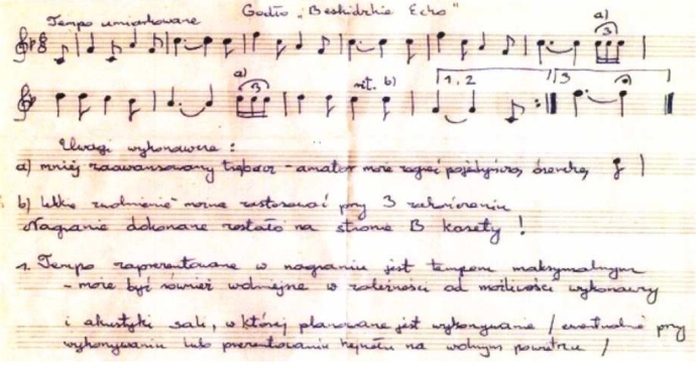 Godło „Beskidzkie Echo"
Tempo umiarkowane
a)
3
a)
3
rit. b)
1, 2
3
Uwagi wykonawcze :
a) mniej zaawansowany trębacz - amator może zagrać pojedyńczą, ósemkę,
b) lekkie zwolnienie można zastosować przy 3 zakończeniu
Nagranie dokonane zostało na stronie B kasety !
1. Tempo zaprezentowane w nagraniu jest tempem maksymalnym
- może być również wolniejsze w zależności od możliwości wykonawcy
i akustyki sali, w której planowane jest wykonywanie / ewentualnie przy
wykonywaniu lub prezentowaniu hejnału na wolnym powietrzu /